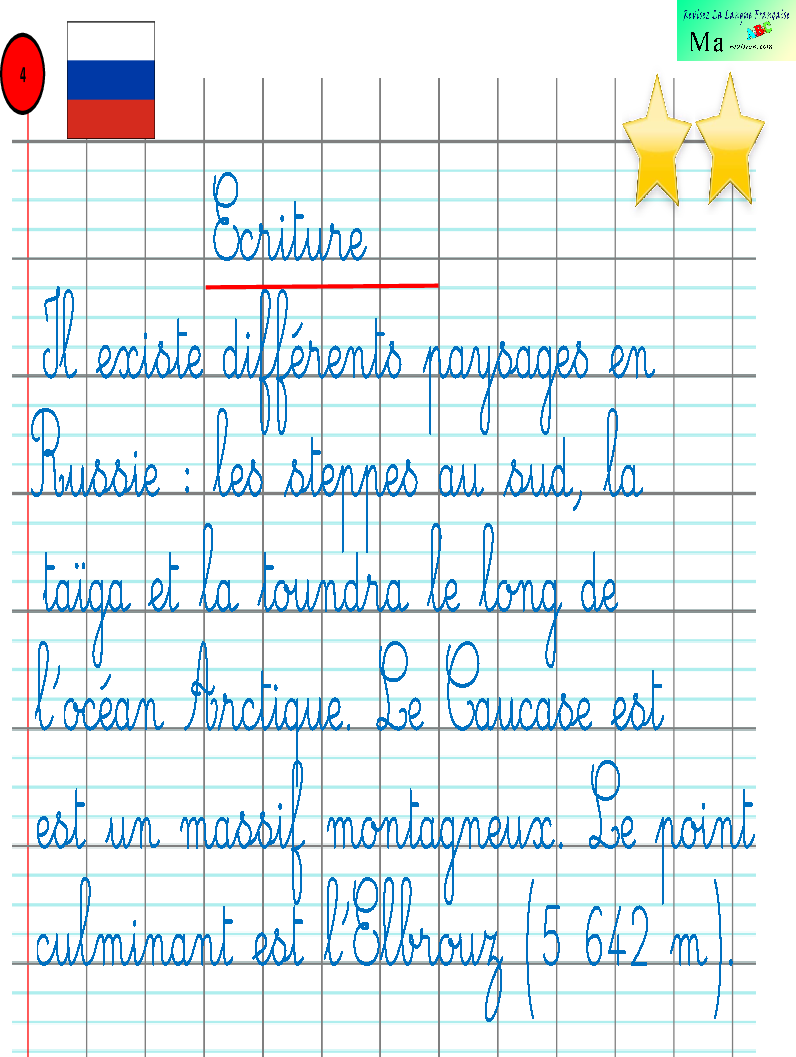 Revisez La Langue Française
Ma
4
Ecriture
Il existe différents paysages en
Russie : les steppes au sud, la
taïga et la toundra le long de
l'océan Arctique. Le Caucase est
est un massif montagneux. Le point
culminant est l'Elbrouz (5 642 m).